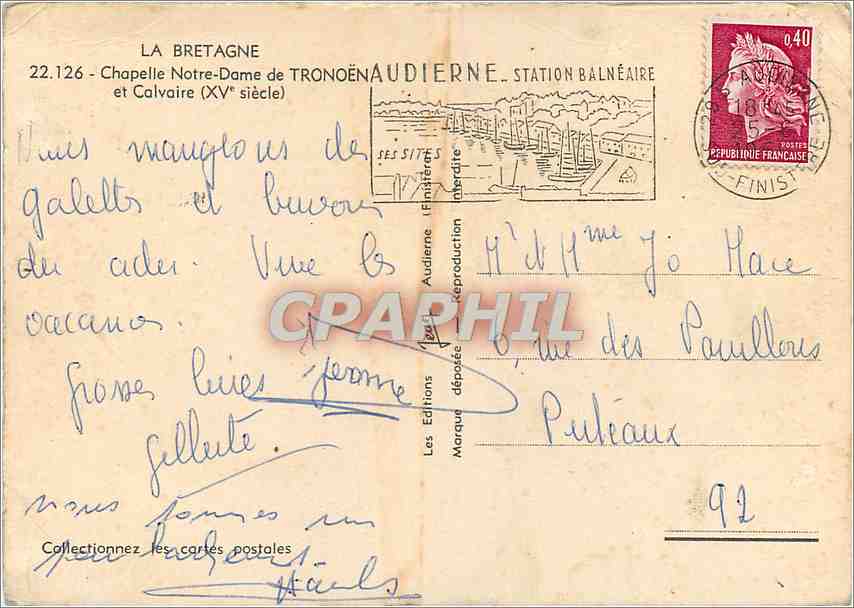 LA BRETAGNE
22.126 - Chapelle Notre-Dame de TRONOËN
et Calvaire (XVe siècle)
AUDIERNE - STATION BALNÉAIRE
SES SITES
0,40
POSTES
REPUBLIQUE FRANÇAISE
AUDIERNE
18H45
FINISTERE
mangeons des
galettes et buvons
du cidre. Vive les
vacances.
Grosses bises
nous sommes un
peu
Collectionnez les cartes postales
Les Editions Jean Audierne (Finistère)
Marque déposée — Reproduction interdite
Mr et Mme Jo Mace
6, rue des Pavillons
Puteaux
92
CPARHIL